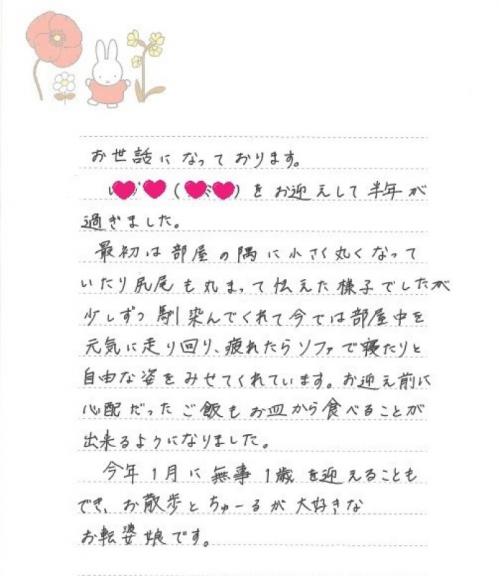 お世話になっております。
(ミ)をお迎えして半年が
過ぎました。
最初は部屋の隅に小さく丸くなって
いたり尻尾も丸まって怯えた様子でしたが
少しずつ馴染んでくれて今では部屋中を
元気に走り回り、疲れたらソファで寝たりと
自由な姿をみせてくれています。お迎え前に
心配だったご飯もお皿から食べることが
出来るようになりました。
今年1月に無事1歳を迎えることも
でき、お散歩とちゅーるが大好きな
お転婆娘です。